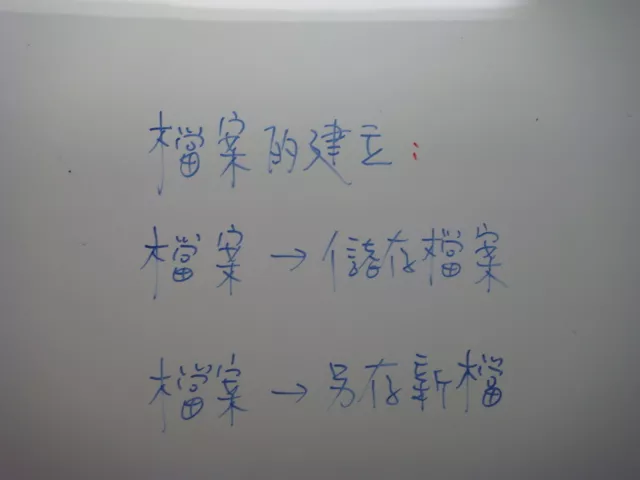 檔案的建立:
檔案→儲存檔案
檔案→另存新檔